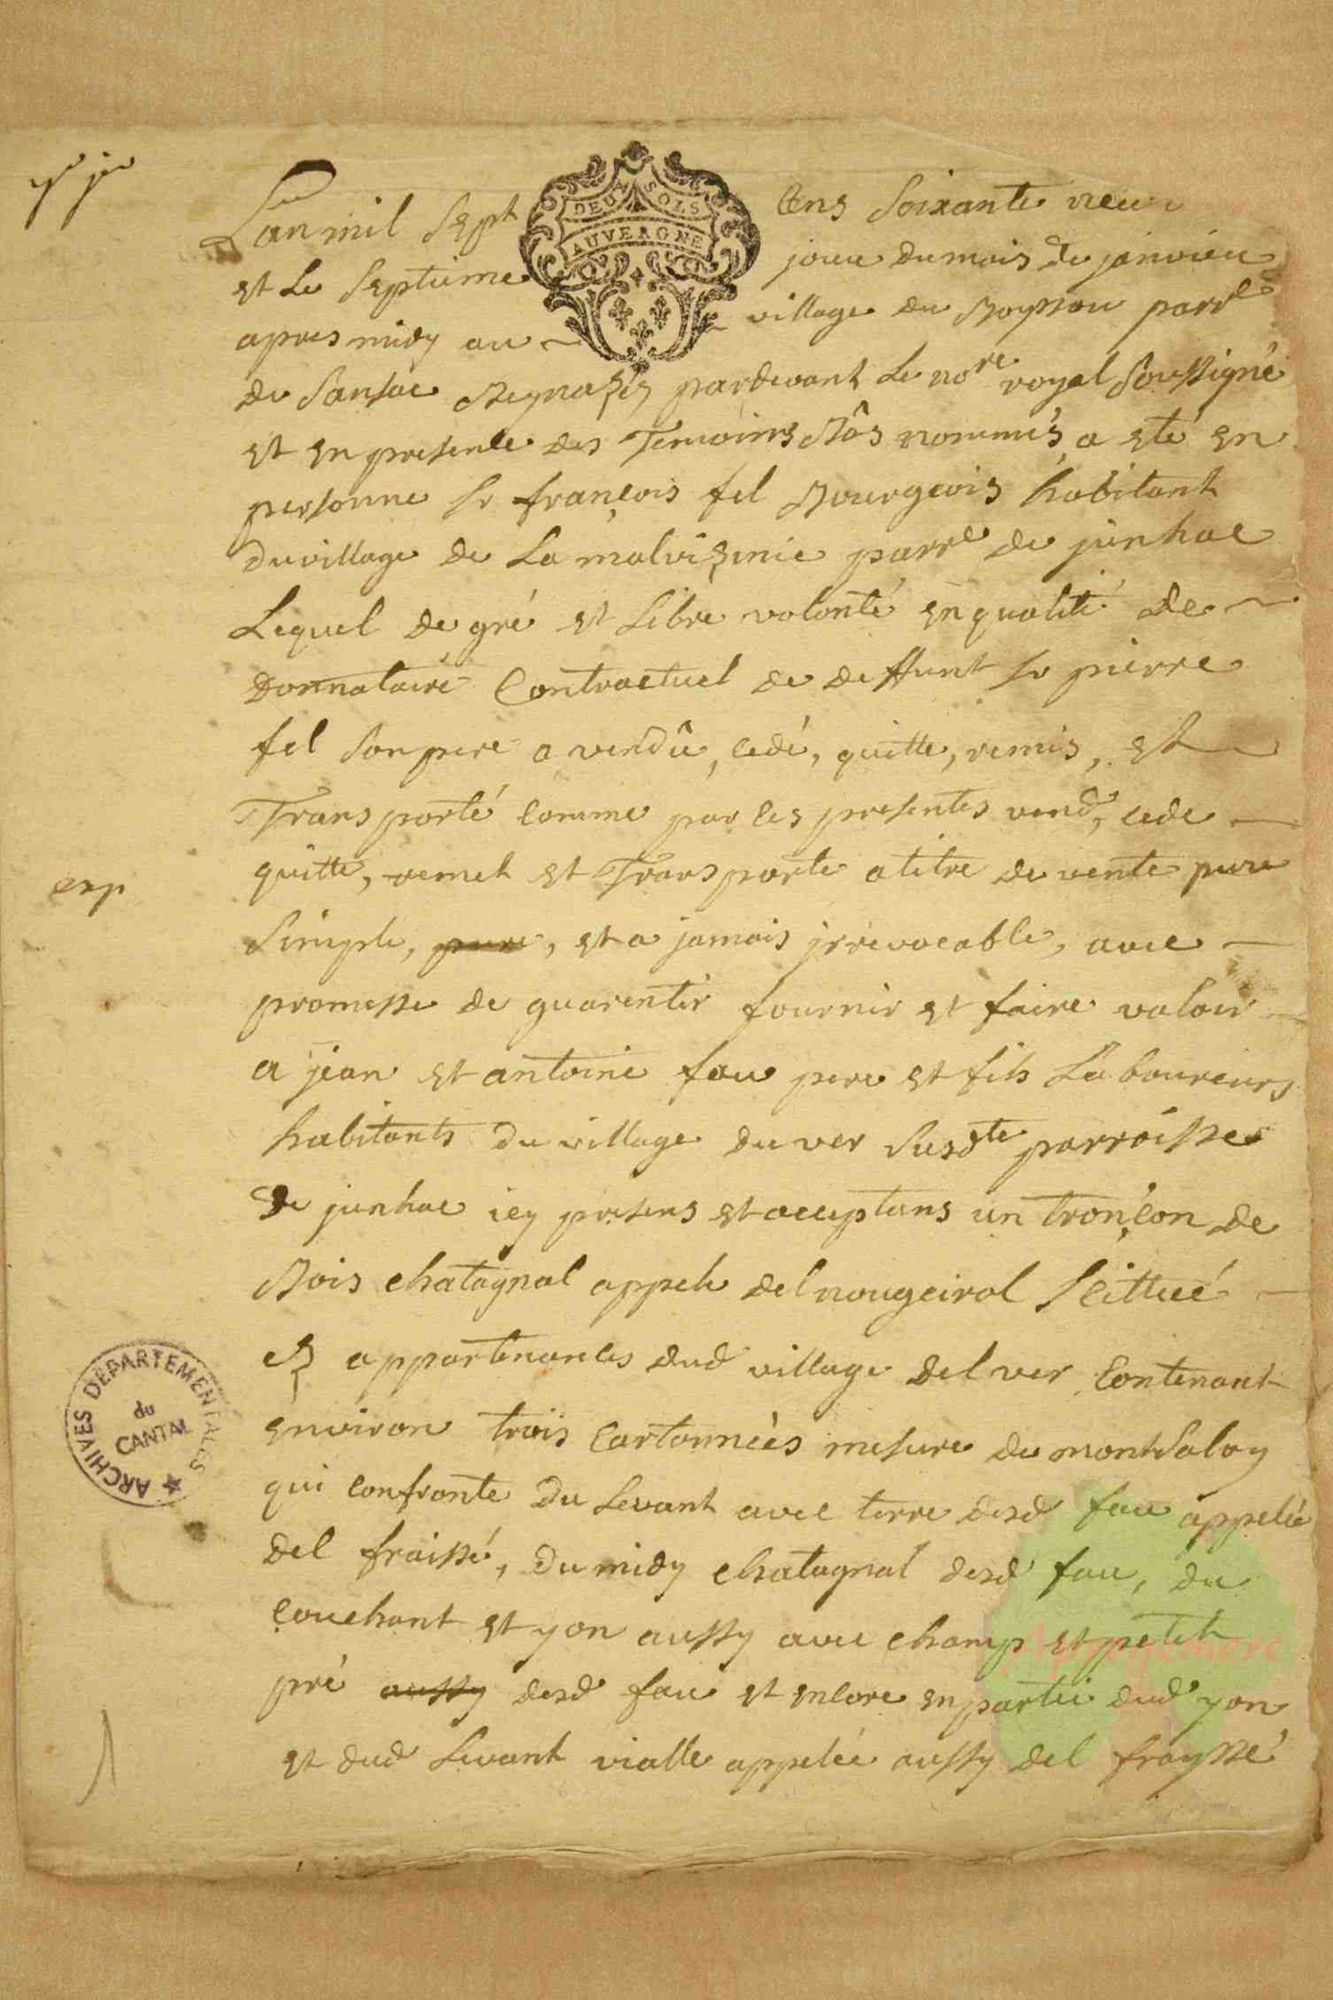 7e jer
L'an mil sept cens soixante neuf
DEUX SOLS
AUVERGNE
et le septieme jour du mois de janvier
apres midy au village du Boyssou parre
de Sansac Beynazés pardevant le nore royal soussigné
et en presence des temoins bâs nommés, a eté en
personne sr françois fel Bourgeois habitant
du village de la malvizinie parre de junhac
Lequel de gré et libre volonté en qualité de
Donnataire Contractuel de deffunt sr pierre
fel son pere a vendû, cedé, quitte, remis, et
Transporté comme par ces presentes vend, cede
quitte, remet et Transporte a titre de vente pure
exp
simple, pure, et a jamais irrevocable, avec
promesse de guarentir fournir et faire valoir
a jean et antoine fau pere et fils Laboureurs
habitants du village du ver susdte parroisse
de junhac icy presens et acceptans un tronçon de
Bois chatagnal appelé del nougeirol scittué
ez appartenances dud village del ver contenant
environ trois cartonnées mesure de montsalvy
qui confronte du levant avec terre desd fau appelée
del fraissé, du midy chatagnal desd fau, du
couchant et yon aussy avec champ et petit
pré aussy desd fau et encore en partie dud yon
et dud levant vialle appelée aussy del fraysse
ARCHIVES DEPARTEMENTALES
du
CANTAL